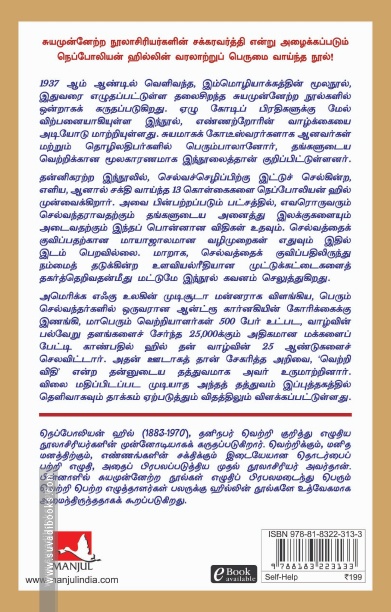 சுயமுன்னேற்ற நூலாசிரியர்களின் சக்கரவர்த்தி என்று அழைக்கப்படும்
நெப்போலியன் ஹில்லின் வரலாற்றுப் பெருமை வாய்ந்த நூல்!
1937 ஆம் ஆண்டில் வெளிவந்த, இம்மொழியாக்கத்தின் மூலநூல்,
இதுவரை எழுதப்பட்டுள்ள தலைசிறந்த சுயமுன்னேற்ற நூல்களில்
ஒன்றாகக் கருதப்படுகிறது. ஏழு கோடிப் பிரதிகளுக்கு மேல்
விற்பனையாகியுள்ள இந்நூல், எண்ணற்றோரின் வாழ்க்கையை
அடியோடு மாற்றியுள்ளது. சுயமாகக் கோடீஸ்வரர்களாக ஆனவர்கள்
மற்றும் தொழிலதிபர்களில் பெரும்பாலானோர், தங்களுடைய
வெற்றிக்கான மூலகாரணமாக இந்நூலைத்தான் குறிப்பிட்டுள்ளனர்.
தன்னிகரற்ற இந்நூலில், செல்வச்செழிப்பிற்கு இட்டுச் செல்கின்ற,
எளிய, ஆனால் சக்தி வாய்ந்த 13 கொள்கைகளை நெப்போலியன் ஹில்
முன்வைக்கிறார். அவை பின்பற்றப்படும் பட்சத்தில், எவரொருவரும்
செல்வந்தராவதற்கும் தங்களுடைய அனைத்து இலக்குகளையும்
அடைவதற்கும் இந்தப் பொன்னான விதிகள் உதவும். செல்வத்தைக்
குவிப்பதற்கான மாயாஜாலமான வழிமுறைகள் எதுவும் இதில்
இடம் பெறவில்லை. மாறாக, செல்வத்தைக் குவிப்பதிலிருந்து
நம்மைத் தடுக்கின்ற உளவியல்ரீதியான முட்டுக்கட்டைகளைத்
தகர்த்தெறிவதன்மீது மட்டுமே இந்நூல் கவனம் செலுத்துகிறது.
அமெரிக்க எஃகு உலகின் முடிசூடா மன்னராக விளங்கிய, பெரும்
செல்வந்தர்களில் ஒருவரான ஆன்ட்ரூ கார்னகியின் கோரிக்கைக்கு
இணங்கி, மாபெரும் வெற்றியாளர்கள் 500 பேர் உட்பட, வாழ்வின்
பல்வேறு தளங்களைச் சேர்ந்த 25,000க்கும் அதிகமான மக்களைப்
பேட்டி காண்பதில் ஹில் தன் வாழ்வின் 25 ஆண்டுகளைச்
செலவிட்டார். அதன் ஊடாகத் தான் சேகரித்த அறிவை, ‘வெற்றி
விதி’ என்ற தன்னுடைய தத்துவமாக அவர் உருமாற்றினார்.
விலை மதிப்பிடப்பட முடியாத அந்தத் தத்துவம் இப்புத்தகத்தில்
தெளிவாகவும் தாக்கம் ஏற்படுத்தும் விதத்திலும் விளக்கப்பட்டுள்ளது.
நெப்போலியன் ஹில் (1883-1970), தனிநபர் வெற்றி குறித்து எழுதிய
நூலாசிரியர்களின் முன்னோடியாகக் கருதப்படுகிறார். வெற்றிக்கும், மனித
மனத்திற்கும், எண்ணங்களின் சக்திக்கும் இடையேயான தொடர்பைப்
பற்றி எழுதி, அதைப் பிரபலப்படுத்திய முதல் நூலாசிரியர் அவர்தான்.
பின்னாளில் சுயமுன்னேற்ற நூல்கள் எழுதிப் பிரபலமடைந்து பெரும்
வெற்றி பெற்ற எழுத்தாளர்கள் பலருக்கு ஹில்லின் நூல்களே உத்வேகமாக
அமைந்திருந்ததாகக் கூறப்படுகிறது.
www.suvadibooks.com
MANJUL
www.manjulindia.com
eBook
available
ISBN 978-81-8322-313-3
9 788183 223133
Self-Help
₹199